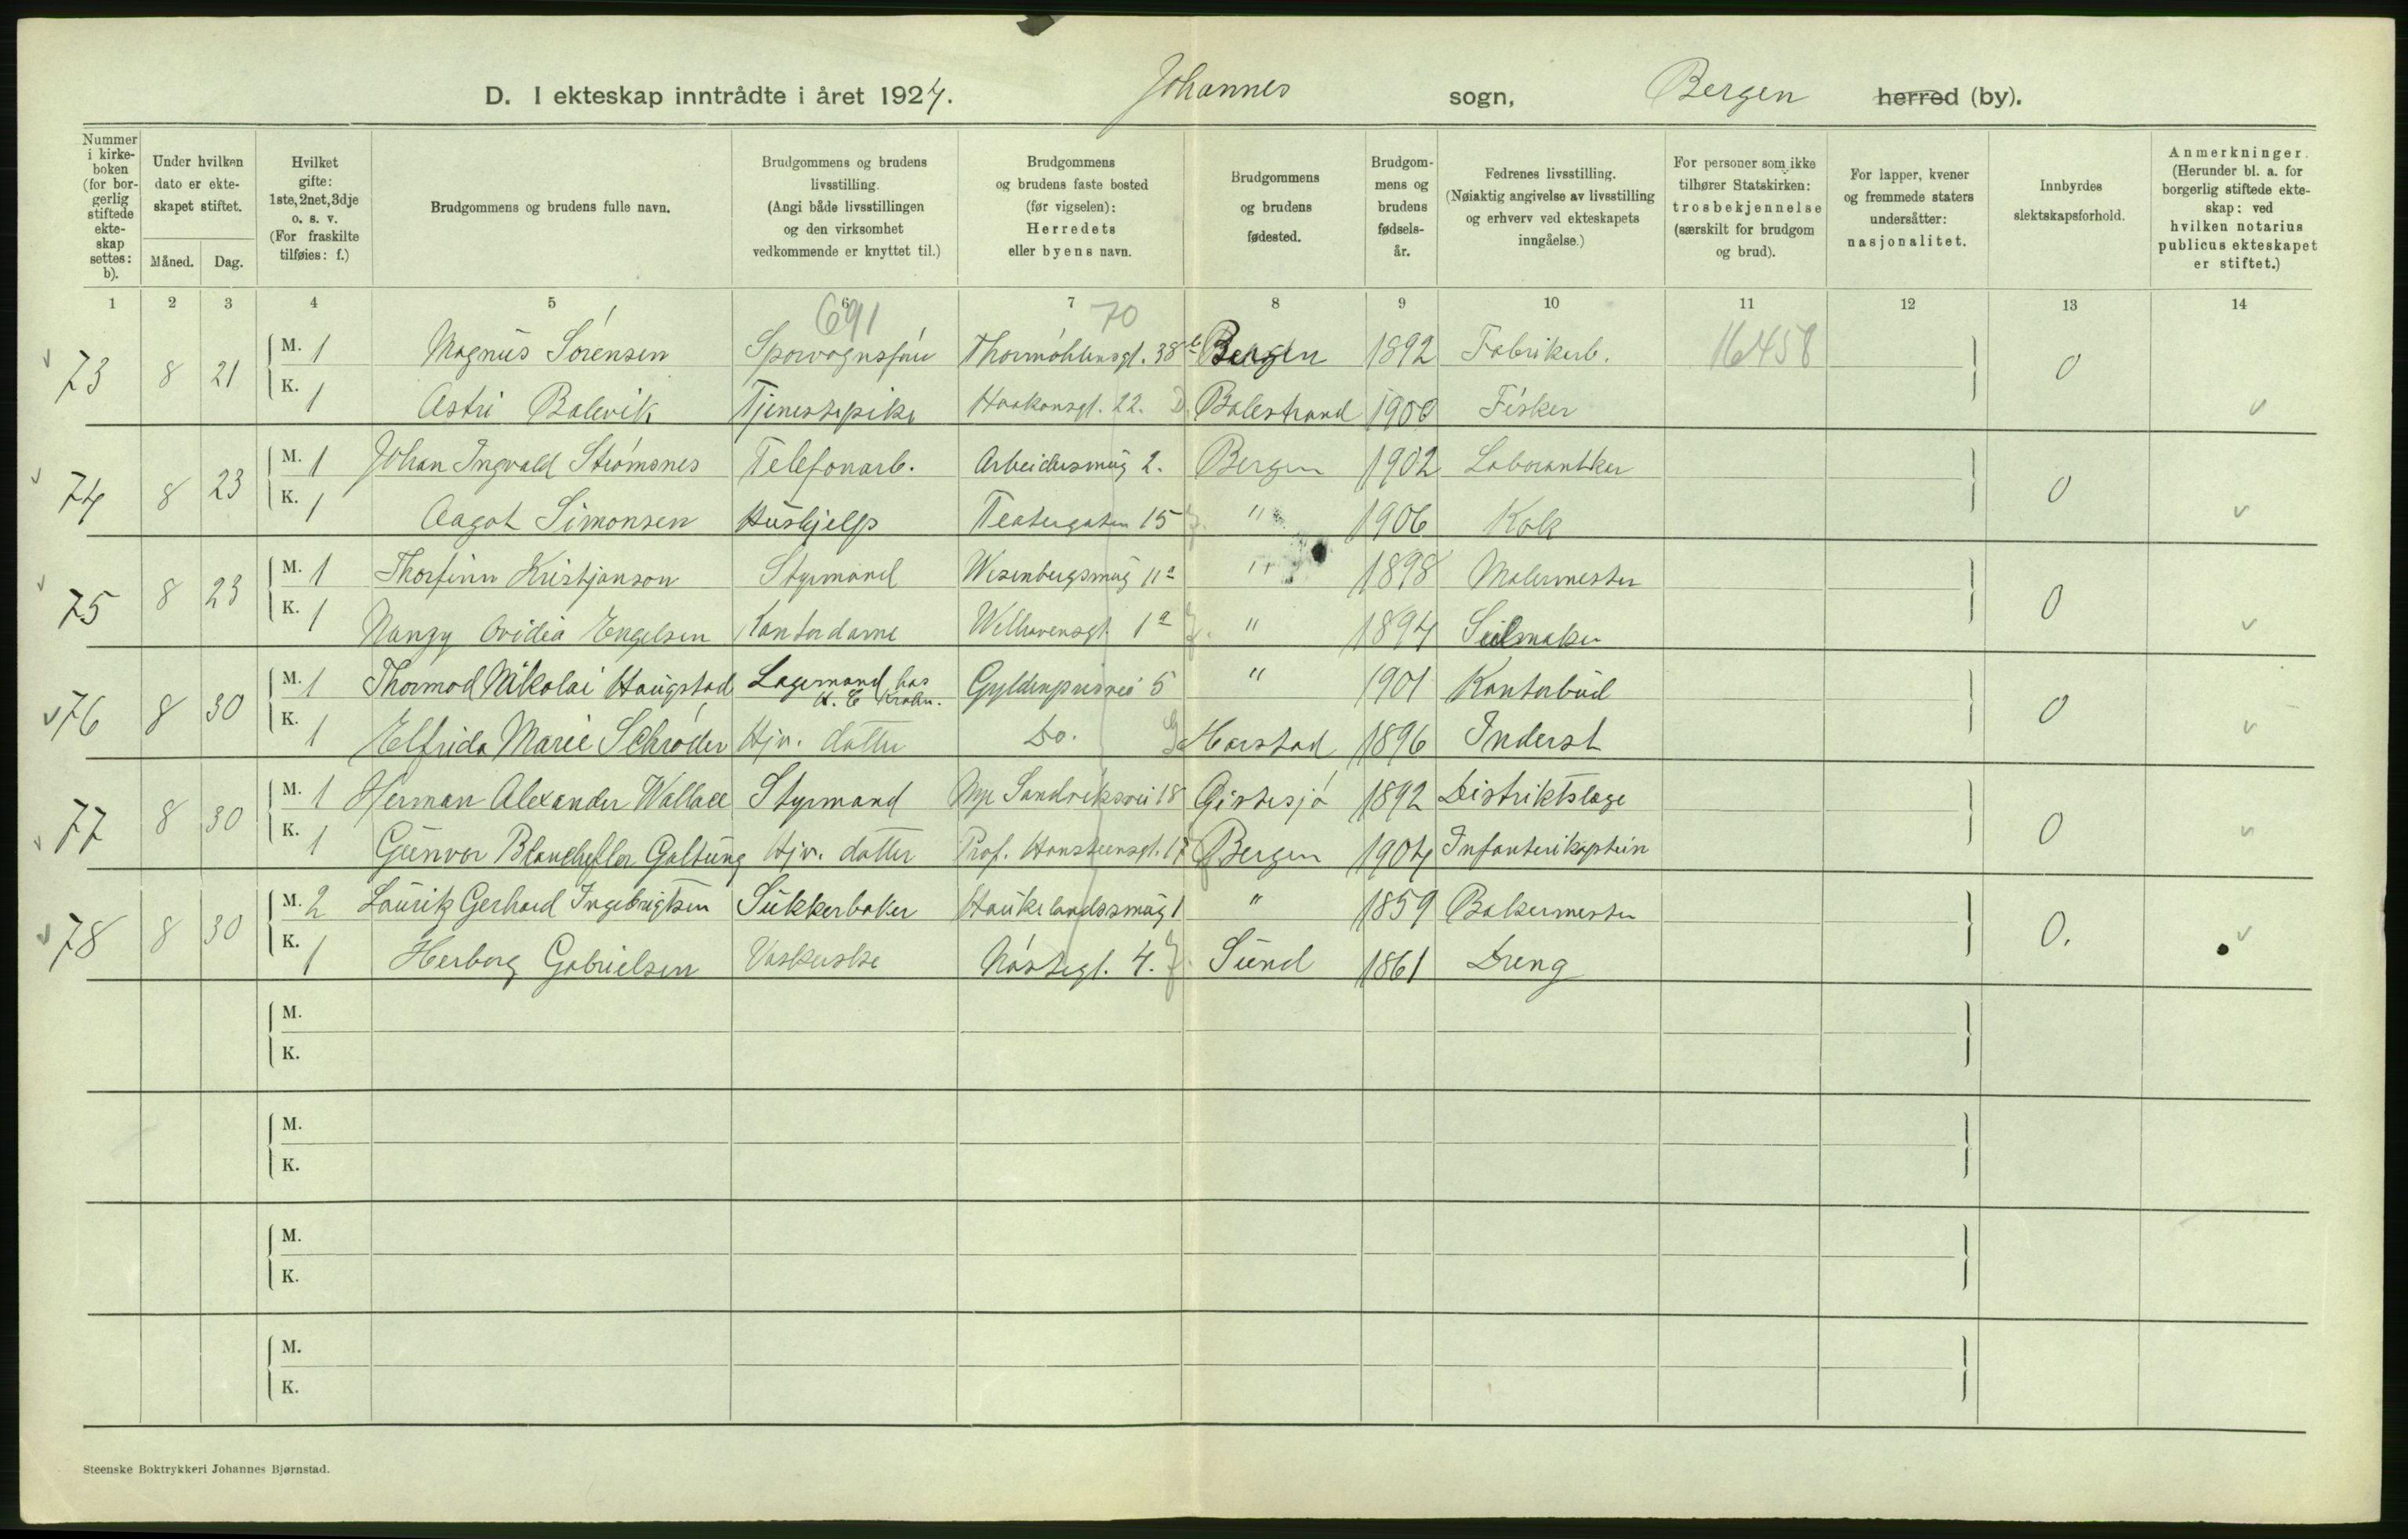 D. I ekteskap inntrådte i året 1924. Johannes sogn, Bergen herred (by).
Nummer i kirkeboken (for borgerlig stiftede ekteskap settes: b).
Under hvilken dato er ekteskapet stiftet.
Måned. Dag.
Hvilket gifte: 1ste, 2net, 3dje o. s. v. (For fraskilte tilføies: f.)
Brudgommens og brudens fulle navn.
Brudgommens og brudens livsstilling. (Angi både livsstillingen og den virksomhet vedkommende er knyttet til.)
Brudgommens og brudens faste bosted (før vigselen): Herredets eller byens navn.
Brudgommens og brudens fødested.
Brudgommens og brudens fødselsår.
Fedrenes livsstilling. (Nøiaktig angivelse av livsstilling og erhverv ved ekteskapets inngåelse.)
For personer som ikke tilhører Statskirken: trosbekjennelse (særskilt for brudgom og brud).
For lapper, kvener og fremmede staters undersåtter: nasjonalitet.
Innbyrdes slektskapsforhold.
Anmerkninger. (Herunder bl. a. for borgerlig stiftede ekteskap: ved hvilken notarius publicus ekteskapet er stiftet.)
1 2 3 4 5 6 7 8 9 10 11 12 13 14
691 70
73 8 21 M. 1 Magnus Sørensen Thormøhlensgt. 38 b Bergen 1892 Fabrikarb. 16458 0
K. 1 Astri Balevik Tjenestepike Haakonsgt. 22. Balestrand 1900 Fisker
74 8 23 M. 1 Johan Ingvald Strømsnes Telefonarb. Arbeidersmug 2. Bergen 1902 0
K. 1 Aagot Simonsen Hushjelp Teatergaten 15 " 1906 Kok
75 8 23 M. 1 Thorfinn Kristjanson Styrmand Wesenbergsmug 11a " 1898 Malermester 0
K. 1 Nanzy Ovidia Engelsen Kontordame Welhavensgt. 1a " 1894 Seilmaker
76 8 30 M. 1 Thormod Nikolai Haugstad Lagermand hos Gyldenprisvei 5 " 1901 Kontorbud 0
K. 1 Elfrida Marie Schrøder Hjv. datter Do. Harstad 1896 Inderst
77 8 30 M. 1 Herman Alexander Wallace Styrmand Nye Sandviksvei 18 1892 Distriktslæge 0
K. 1 Gunvor Blancheflor Galtung Hjv. datter Prof. Hansteensgt. Bergen 1904 Infanterikaptein
78 8 30 M. 2 Lauritz Gerhard Ingebrigtsen Sukkerbaker Haukelandssmug 1 " 1859 Bakermester 0.
K. 1 Herborg Gabrielsen Vaskerske Nøstegt. 4. Sund 1861 Dreng
M.
K.
M.
K.
M.
K.
M.
K.
Steenske Boktrykkeri Johannes Bjørnstad.